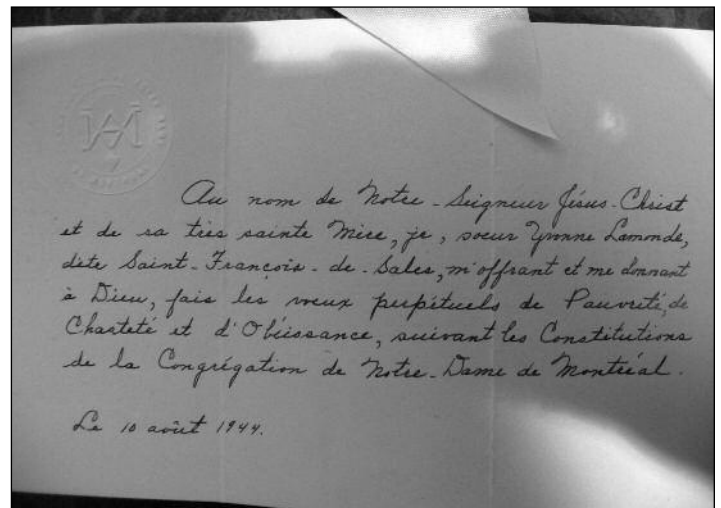 Au nom de Notre-Seigneur Jésus-Christ
et de sa très sainte Mère, je, soeur Yvonne Lamonde,
dite Saint-François-de-Sales, m'offrant et me donnant
à Dieu, fais les voeux perpétuels de Pauvreté, de
Chasteté et d'Obéissance, suivant les Constitutions
de la Congrégation de Notre-Dame de Montréal.
Le 10 août 1944.